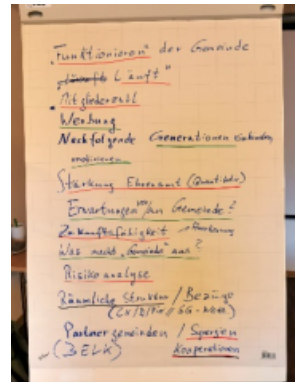 „Funktionieren" der Gemeinde
Läuft"
Mitgliederzahl
Werbung
Nachfolgende Generationen einbinden,
motivieren
Stärkung Ehrenamt (Quantität)
Erwartungen von/an Gemeinde?
Zukunftsfähigkeit
Was macht „Gemeinde" aus?
Risikoanalyse
Räumliche Struktur / Bezüge
Partnergemeinden / Synergien
Kooperationen